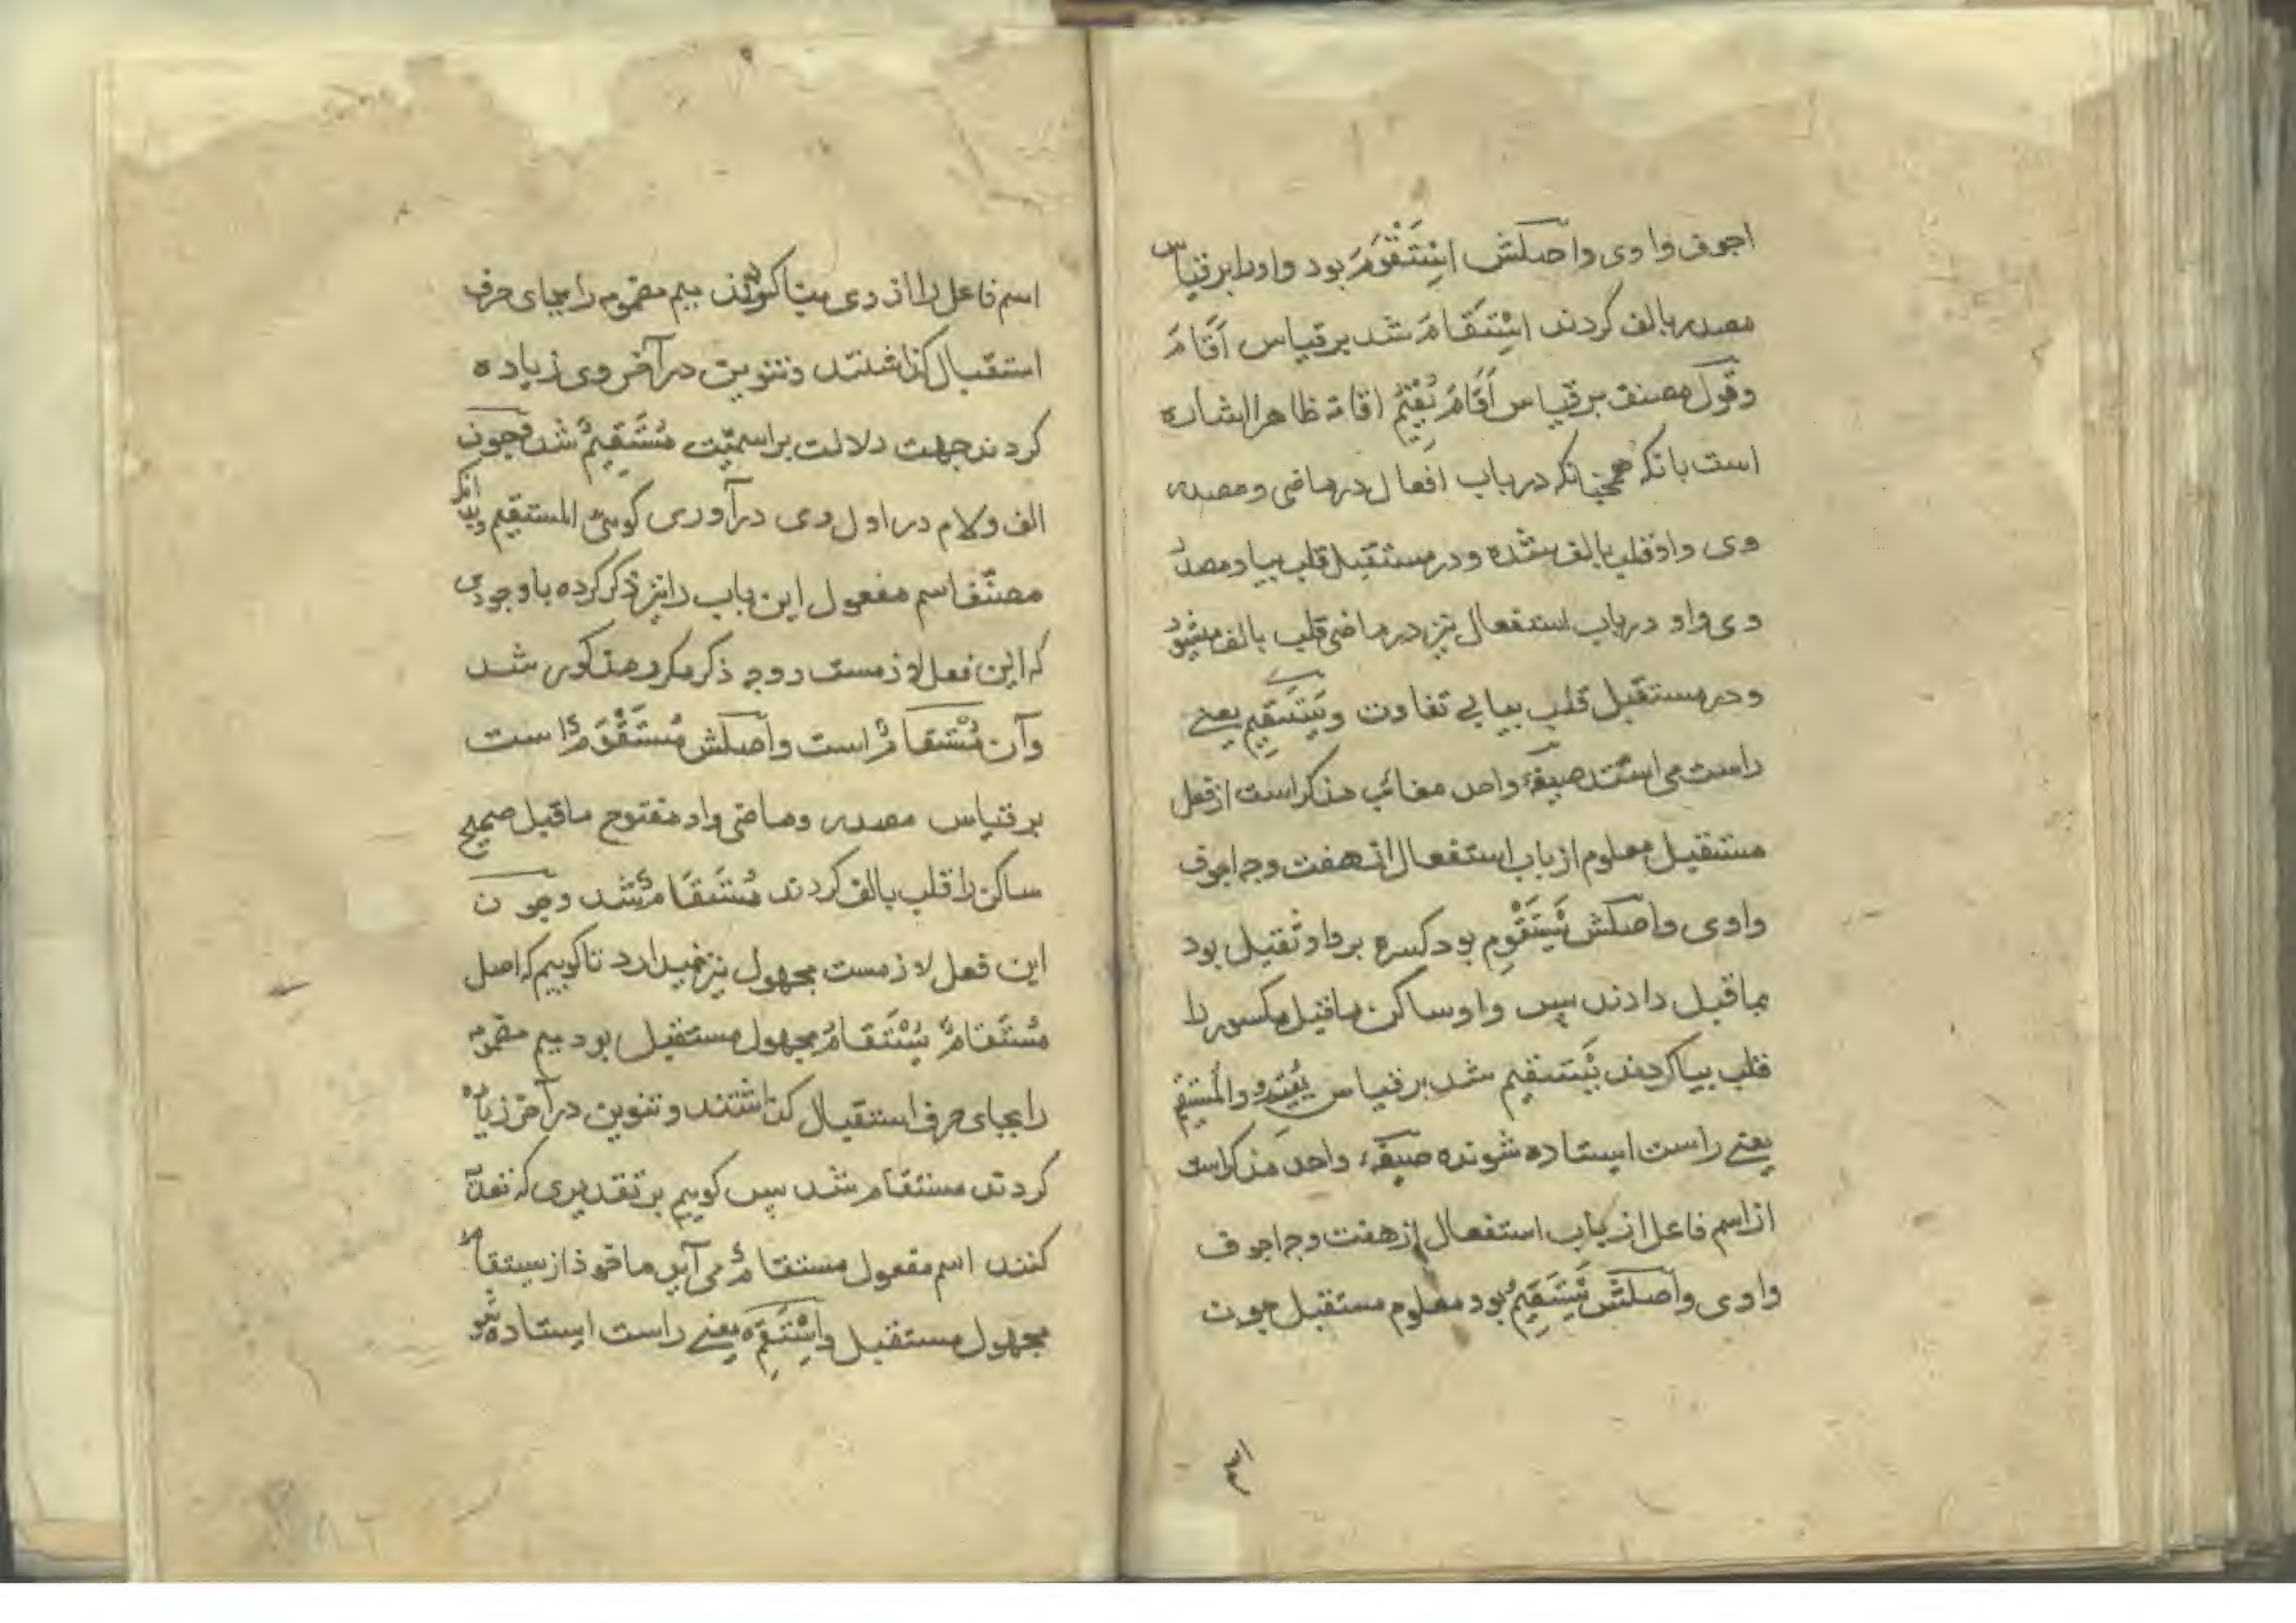 اجوف واوی واصلش اِسْتَقْوَمَ بود واورا بر قیاس
مصدر بالف کردند اسْتَقَامَ شد بر قیاس اَقَامَ
وقول مصنف بر قیاس اَقَامَ یُقِیْمُ اقامة ظاهرا اشاره
است بانکه همچنانکه در باب افعال در ماضی و مصدر
وی واو قلب بالف شده و در مستقبل قلب بیا و مصدر
وی واو در باب استفعال نیز در ماضی قلب بالف میشود
و در مستقبل قلب بیا بی تفاوت ویَسْتَقِیم یعنے
راست می استد صیغهٔ واحد مغائب مذکر است از فعل
مستقبل معلوم از باب استفعال از هفت وجه اجوف
واوی واصلش یَسْتَقْوِم بود کسره بر واو ثقیل بود
بماقبل دادند پس واو ساکن ماقبل مکسور را
قلب بیا کردند یَسْتقیم شد بر قیاس یُقِیْمُ والمُسْتَقِیم
یعنے راست ایستاده شونده صیغهٔ واحد مذکر است
از اسم فاعل از باب استفعال از هفت وجه اجوف
واوی واصلش یَسْتَقِیمُ بود معلوم مستقبل چون
اسم فاعل را از وی بنا کردند میم مضموم را بجای حرف
استقبال کذاشتند وتنوین در آخر وی زیاده
کردند جهت دلالت بر اسمیّت مُسْتَقِیمٌ شد وچون
الف ولام در اول وی درآوری کوئی المستقیم وبدانکه
مصنّف اسم مفعول این باب را نیز ذکر کرده باوجودی
که این فعل لازمست ووجه ذکر مکرر مذکور شد
وآن مُسْتقامٌ است واصلش مُسْتَقْوَمٌ است
بر قیاس مصدر وماضی واو مفتوح ماقبل صحیح
ساکن را قلب بالف کردند مُسْتَقَامٌ شد وچون
این فعل لازمست مجهول نیز نمیدارد تا کوییم که اصل
مُسْتَقامٌ یُسْتَقامُ مجهول مستقبل بود میم مضموم
را بجای حرف استقبال کذاشتند وتنوین در آخر زیاده
کردند مستقام شد پس کوییم بر تقدیری که تعدیه
کنند اسم مفعول مستقامٌ می آید ماخوذ از یستقام
مجهول مستقبل واِسْتَقِمْ یعنے راست ایستاده شو